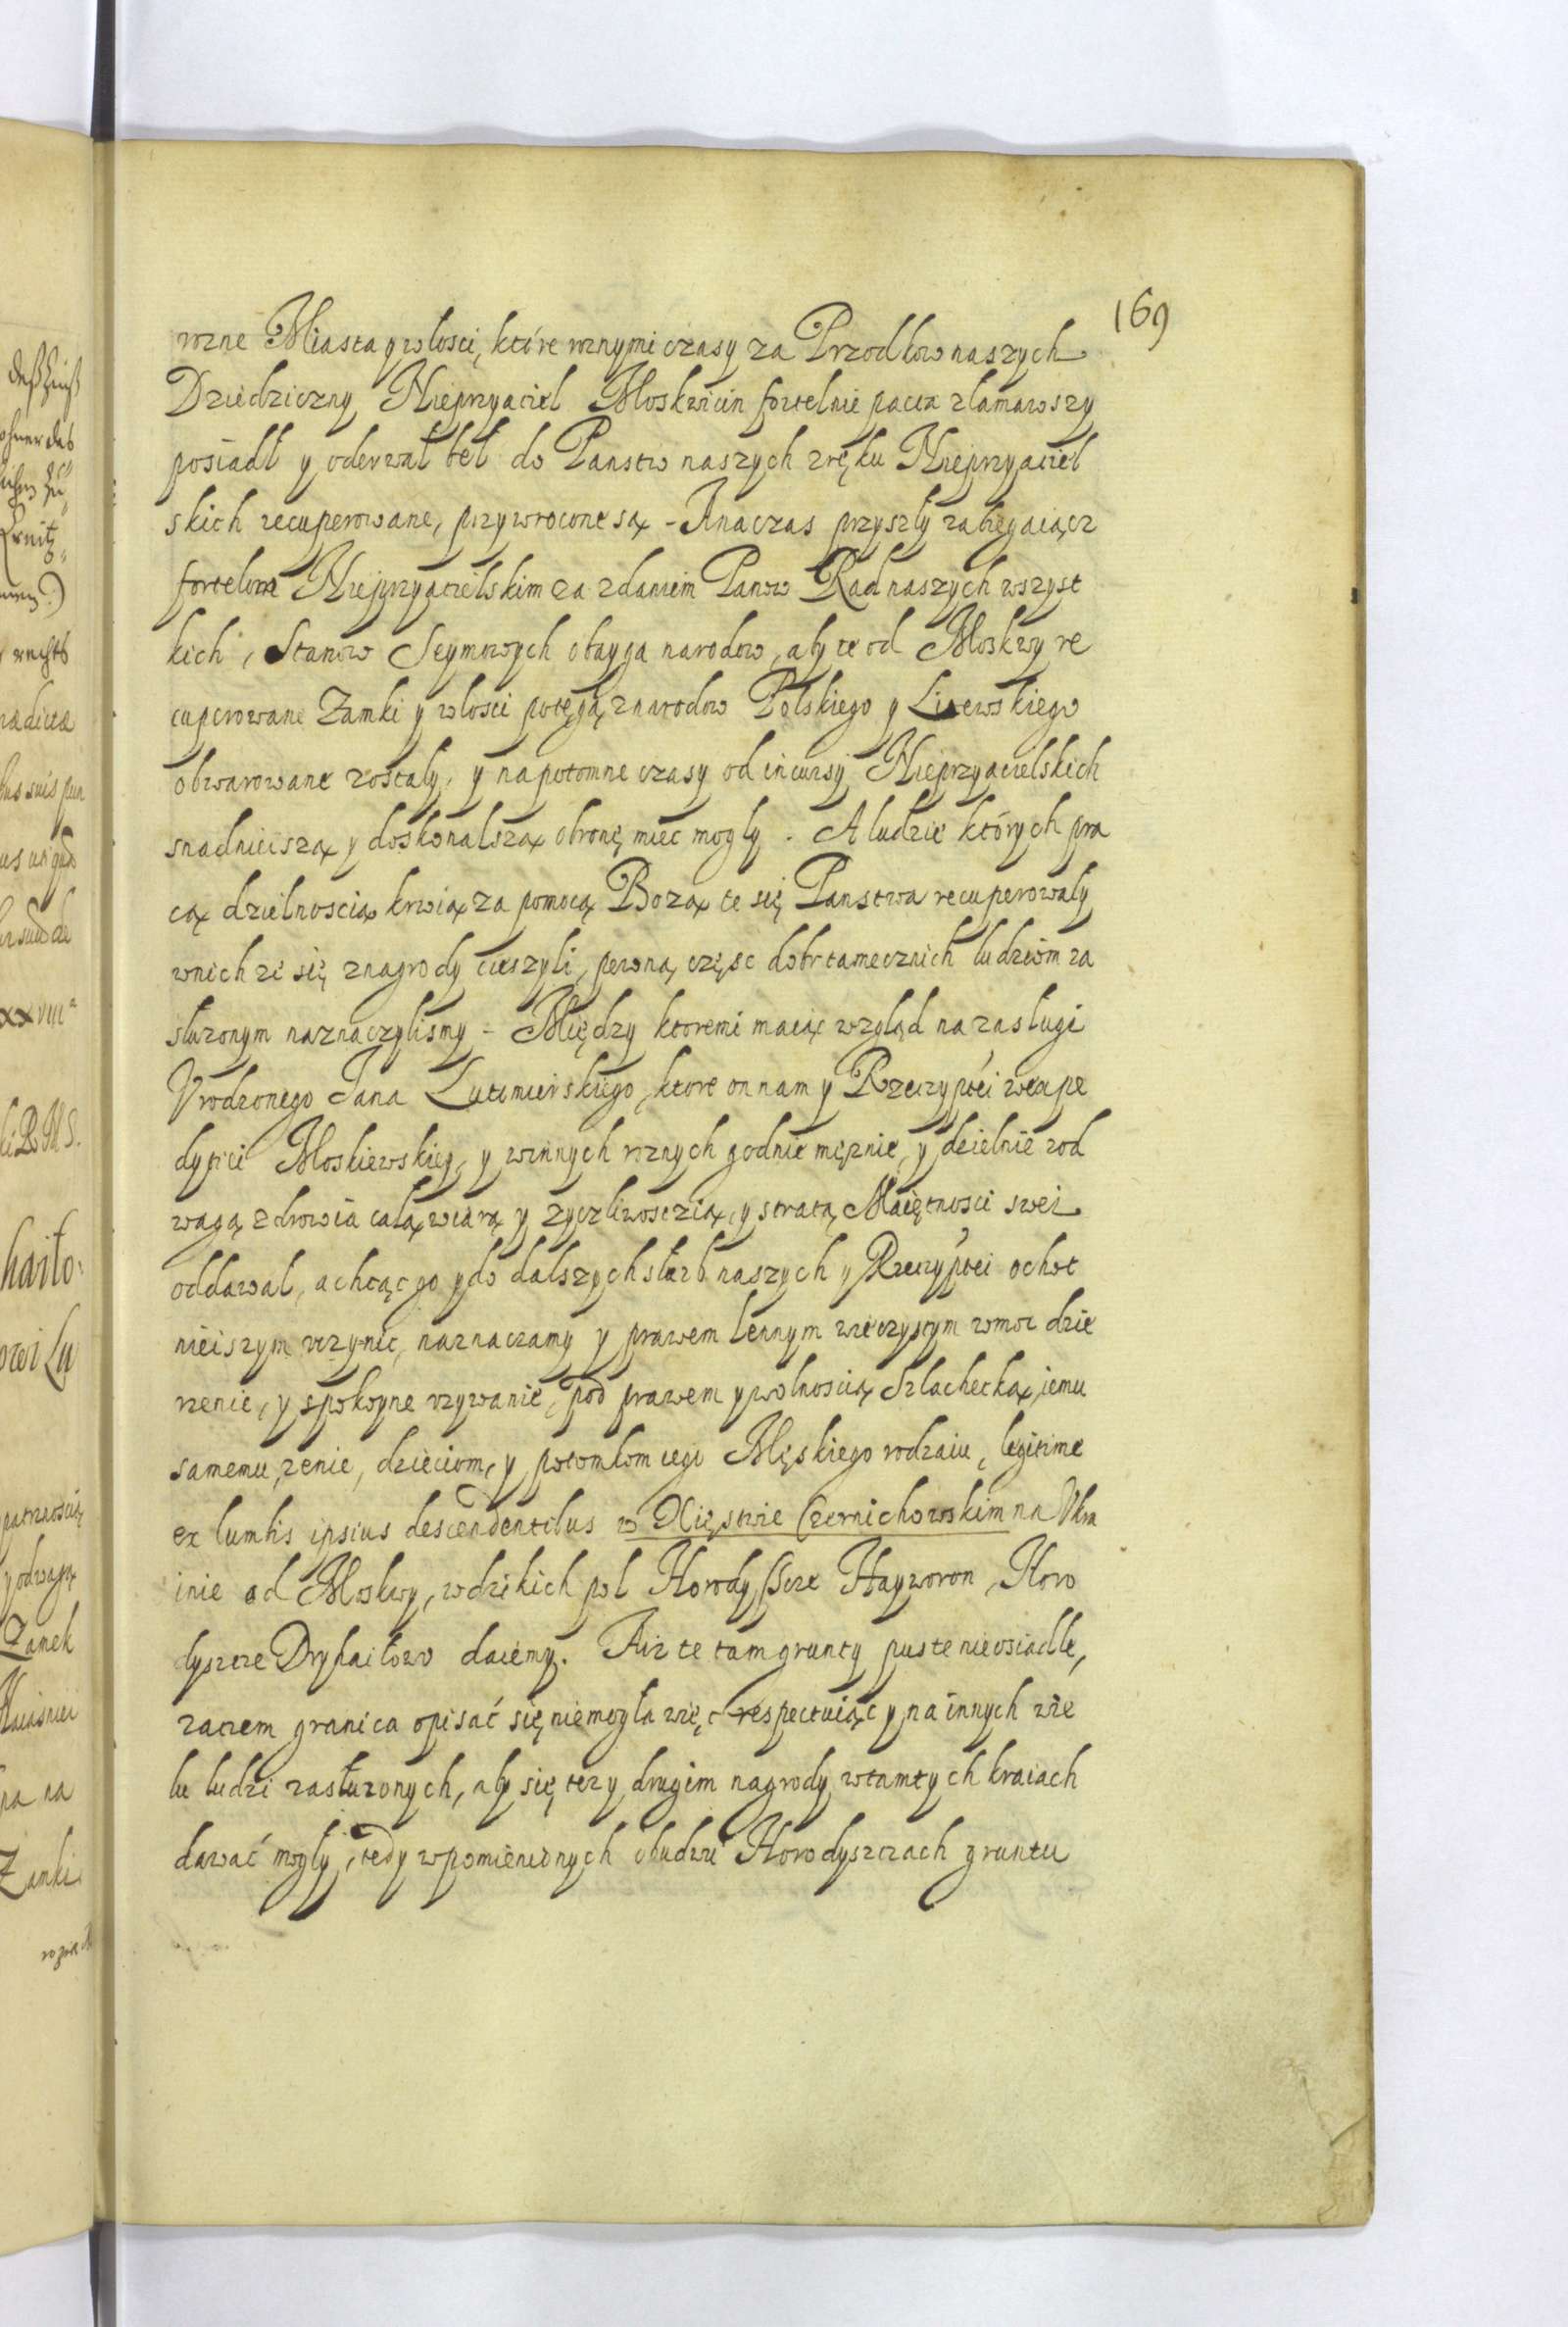 169
rozne Miasta y wlosci, które roznymi czasy za Przodkow naszych
Dziedziczny Nieprzyaciel Moskwicin fortelnie pacta zlamawszy
posiadl y oderwal bel do Panstw naszych z ręku Nieprzyaciel
skich recuperowane, przywrocone są - A na czas przyszly zabiegaiącz
fortelom Nieprzyacielskim za zdaniem Panow Rad naszych wszyst
kich, Stanow Seymowych oboyga narodow, aby te od Moskwy re
cuperowane Zamki y wlosci potęgą z narodow Polskiego y Litewskiego
obwarowane zostaly, y na potomne czasy od incursy Nieprzyacielskich
snadnieiszą y doskonalszą obronę miec mogly. A ludzie których pra
cą dzielnoscią krwią za pomocą Bozą te się Panstwa recuperowaly
w nich ze się z nagrody cieszyli, pewną częsc dobr tamecznich ludziom za
sluzonym naznaczylismy - Między ktoremi maiąc wzgląd na zaslugi
Vrodzonego Jana Lutomierskiego, ktore on nam y Rzeczyptei w expe
dyticii Moskiewskiey, y w innych roznych godnie męznie, y dzielnie z od
wagą zdrowia całą wiarą y zyczliwosczią, y stratą Maiętnosci swei
oddawal, a chcąc go y do dalszych słuzb naszych y Rzeczyptei ochot
nieiszym uczynic, naznaczamy y prawem lennym wieczystym w moc dzie
rzenie, y spokoyne uzywanie, pod prawem y wolnoscią Szlachecką, iemu
samemu, zenie, dzieciom, y potomkom iego Męskiego rodzaiu, legitime
ex lumbis ipsius descendentibus w Xięstwie Czernichowskim na Vkra
inie od Moskwy, w dzikich pol Horodyszcze Hayworon, Horo
dyszcze Dryhaiłow daiemy. A iz te tam grunty puste nieosiadle,
zaczem granica opisać się nie mogła więc respectuiąc y na innych wie
lu ludzi zasłuzonych, aby się tez y drugim nagrody w tamtych kraiach
dawać mogly, tedy w pomienionych obudwu Horodyszczach gruntu